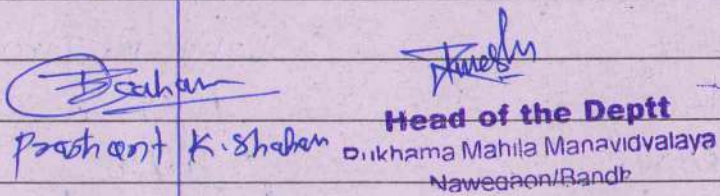 Prashant K. Shahan
Head of the Deptt
Dukhama Mahila Manavidvalaya
Nawegaon/Bandh